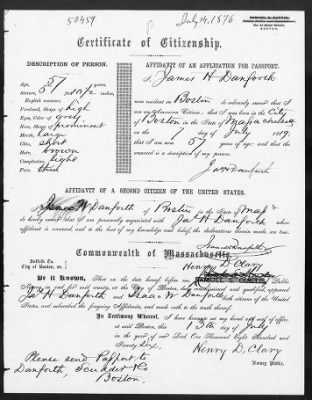 50459
July 14, 1876
Certificate of Citizenship.
DESCRIPTION OF PERSON.
Age, 57
Stature, 5 feet 10 1/2 inches
English measure.
Forehead, Shape of high
Eyes, Color of grey
Nose, Shape of prominent
Mouth large
Chin, short
Hair, brown
Complexion, light
Face, thick
AFFIDAVIT OF AN APPLICATION FOR PASSPORT.
I, James H Danforth
now resident in Boston do solemnly swear that I
am a Citizen; that I was born in the City
of Boston in the State of Massachusetts
on the 1 day of July 1819.
that I am now 57 years of age; and that the
annexed is a description of my person.
Jas H Danforth
AFFIDAVIT OF A SECOND CITIZEN OF THE UNITED STATES.
I, Isaac W Danforth of Boston in the State of Mass
do hereby swear that I am personally acquainted with Jas H Danforth whose
affidavit is annexed, and to the best of my knowledge and belief, the declarations therein made, are true.
Isaac W Danforth
Commonwealth of Massachusetts.
Suffolk Co.
City of Boston, ss.
Henry D. Clary
Be it Known, That on the date hereof before me, Notary Public
in and for said county, at the City of Boston, duly and qualified appeared
Jas H Danforth and Isaac W Danforth both citizens of the United
States, and subscribed the foregoing Affidavits, and made oath to the truth thereof.
In Testimony Whereof, I have hereunto set my hand and seal of office,
at said Boston, this 13th day of July
in the year of our Lord One Thousand Eight Hundred and
Seventy Six
Henry D. Clary
Notary Public.
Please send Passport to
Danforth, Scudder & Co
Boston.